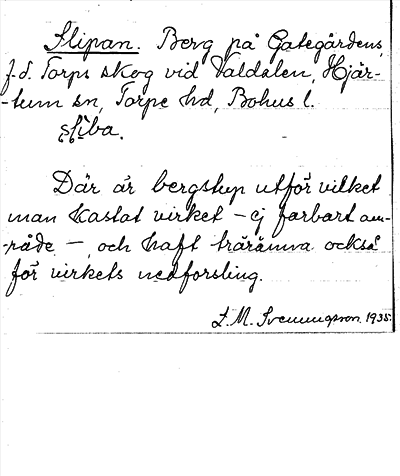 Slipan. Berg på Gategårdens,
f.d. Torps skog vid Valdalen, Hjär-
-tum sn, Torpe hd, Bohus l.
slìba.
Där är bergstup utför vilket
man kastat virket – ej farbart om-
-råde –, och haft träränna också
för virkets nedforsling.
L. M. Svenungsson. 1935.